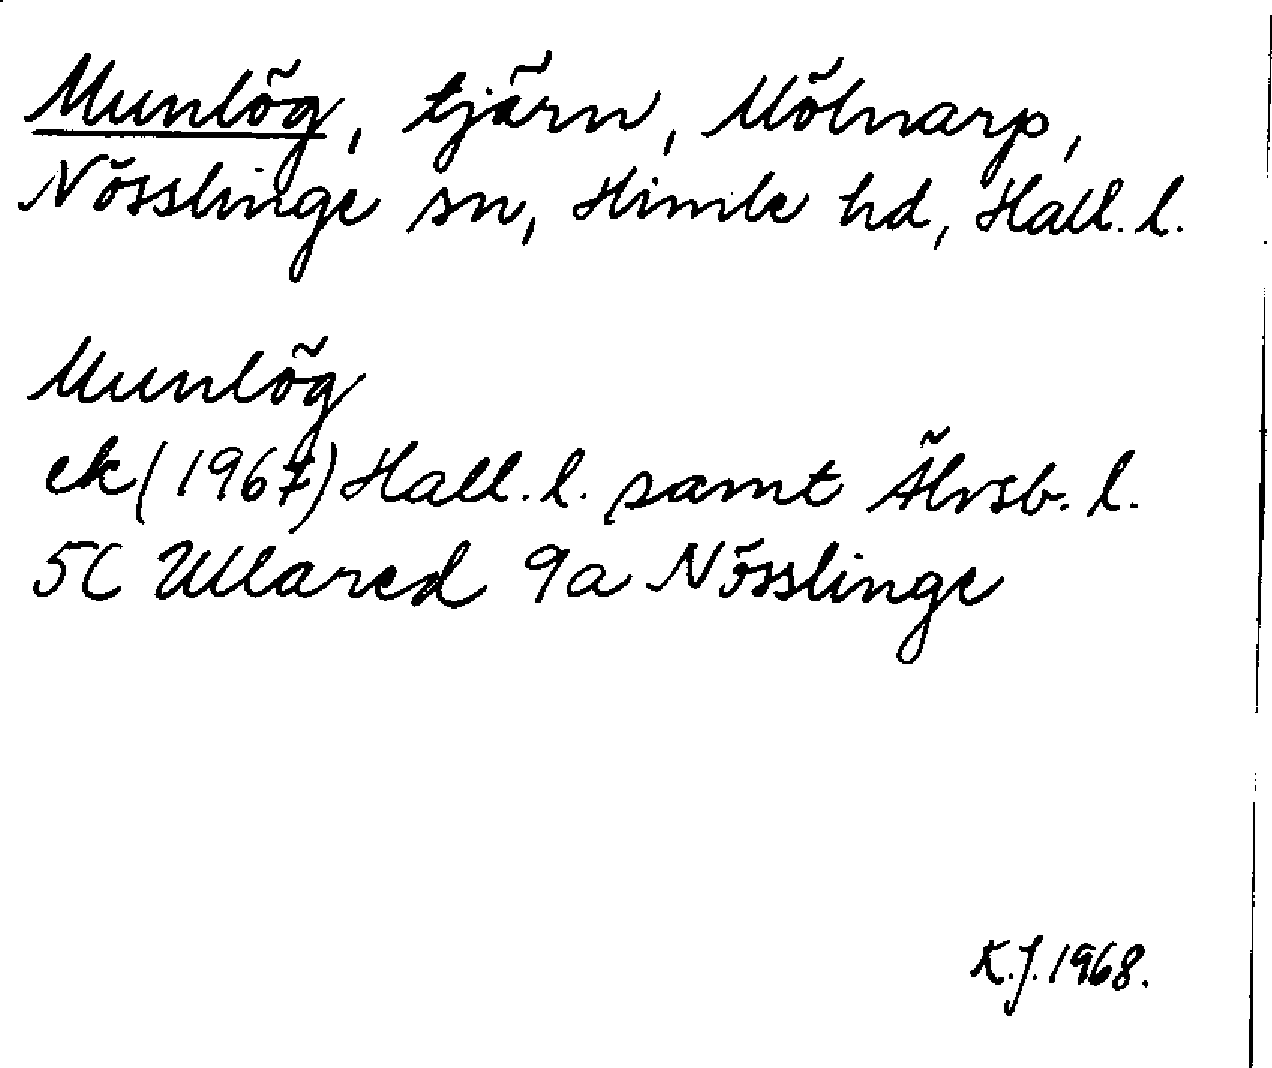 Munlög, tjärn, Mölnarp,
Nösslinge sn, Himle hd, Hall. l.
Munlög
ek (1967) Hall. l. samt Älvsb. l.
5C Ullared 9a Nösslinge
K.J. 1968.